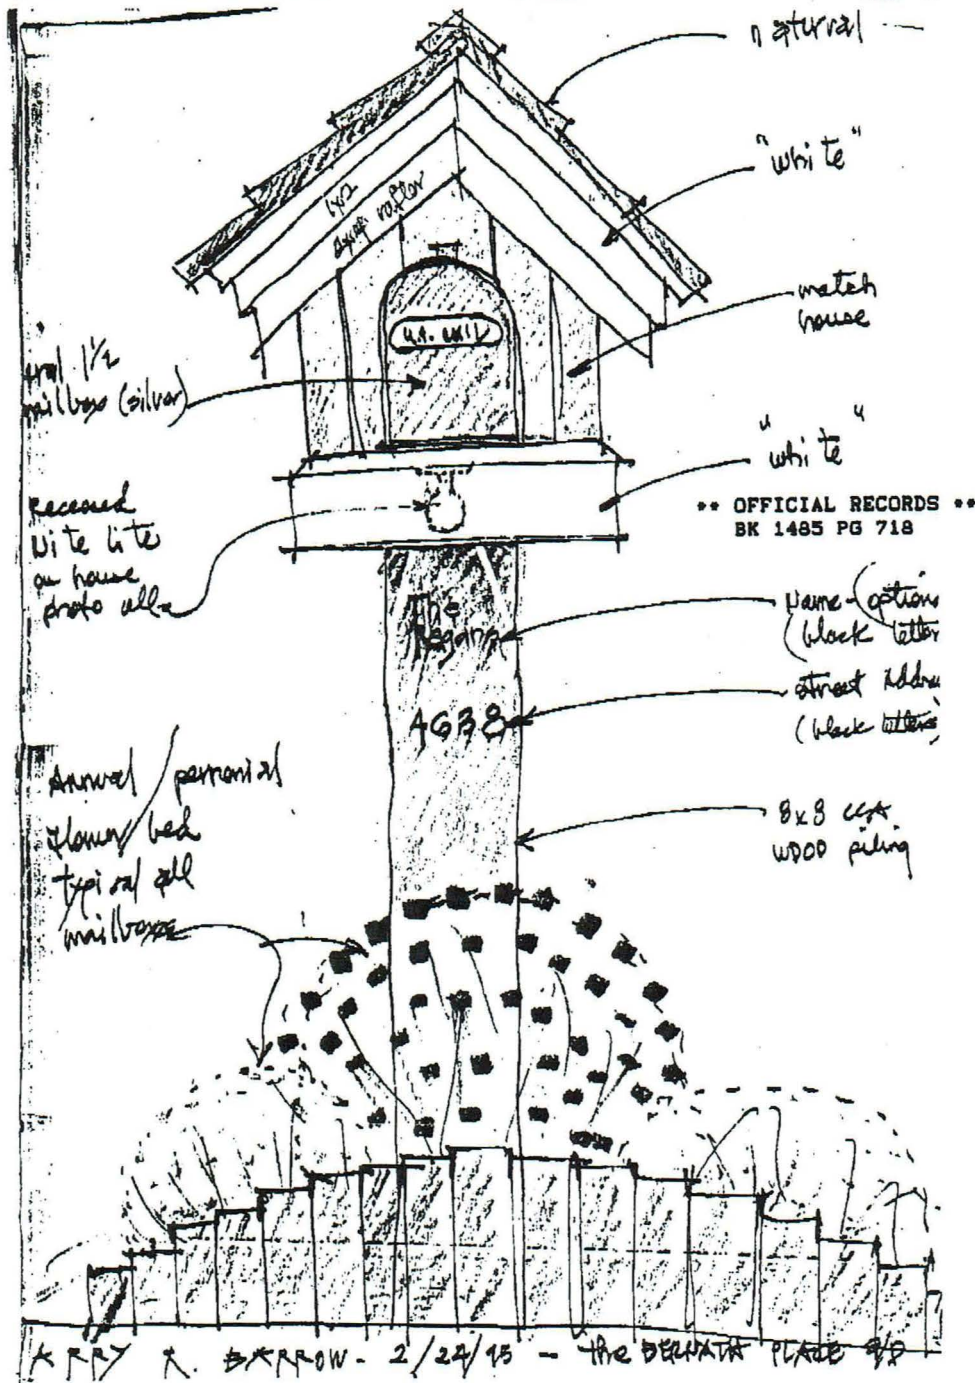 natural
"white"
1x2
rafter
match
house
U.S. MAIL
1 1/2
mailbox (silver)
"white"
** OFFICIAL RECORDS **
BK 1485 PG 718
Recessed
Nite Lite
on house
photo
The
Regans
Name - (option
(black letter
street Addre
(black letters)
4638
Annual / perennial
flower bed
typical all
mailboxes
8x8 CCA
WOOD piling
ARRY R. BARROW - 2/24/95 - The PLACE